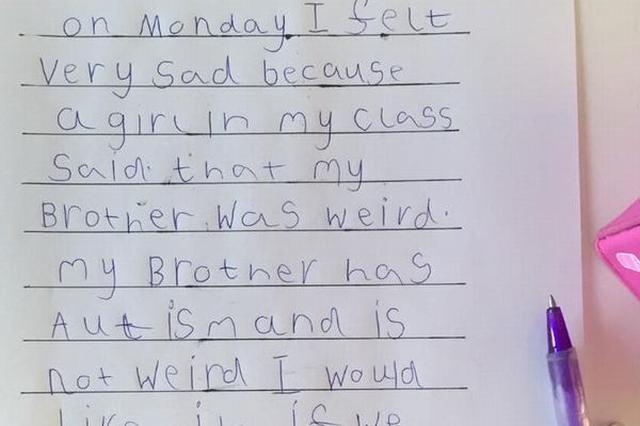 on Monday I felt
Very Sad because
a girl In my class
Said that my
Brother was weird.
my Brother has
Autism and is
not weird I would
like it if we